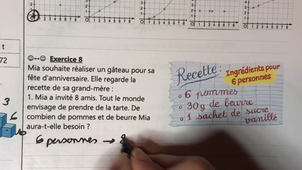 t
72
Exercice 8
Mia souhaite réaliser un gâteau pour sa
fête d'anniversaire. Elle regarde la
recette de sa grand-mère :
1. Mia a invité 8 amis. Tout le monde
envisage de prendre de la tarte. De
combien de pommes et de beurre Mia
aura-t-elle besoin ?
6 personnes →
Recette :
Ingrédients pour
6 personnes
6 pommes
30g de beurre
1 sachet de sucre
vanillé
3
6